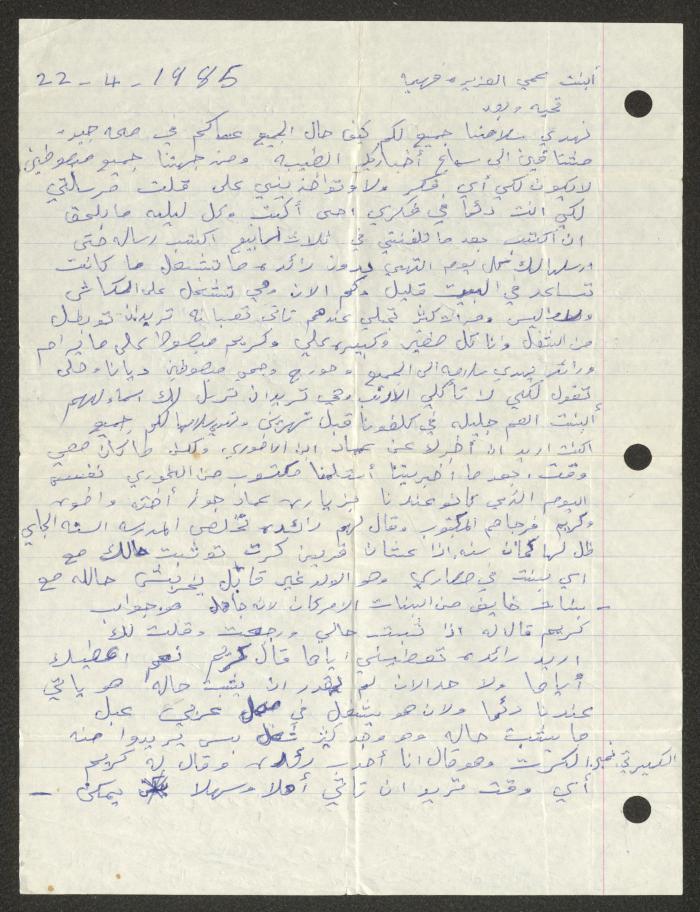 22-4-1985
ألبنت عمي العزيزه فهيمه
تحيه وبعد
نهدي سلامنا جميع لكم كيف حال الجميع عساكم في صحه جيده
مشتاقين الى سماع أخباركم الطيبه ومن جهتنا جميع مبسوطين
لا يكون لكي أي فكر ولا تواخذيني على قلت مرسالتي
لكي انت دئماً في فكري احب أكتب وكل ليله ما بلحق
ان اكتب بعد ما تلفنتي في ثلاث أسابيع اكتب رساله حتى
ارسلها لك كل يوم التهي بدون رائده ما تشتغل ما كانت
تساعد في البيت قليل وكم الان وهي تشتغل على الكاش
البيس ومن الاكثر تخلي عندهم تاتي تعبانه تريد ان تبطل
من الشغل وانا كل صغير وكبيره علي وكريم مبسوط على ما يرام
ورائد يهدي سلامه الى الجميع وجورج وجمي مبسوطين ديانا وحلى
تقول لكي لا تأكلي الأرنب وهي تريد ان ترسل لك سماولهم
ألبنت العم جليله في كلفونيا قبل شهرين وتهدي سلامها لكم جميع
اكنت اريد ان أخبرك عن عماد ابن الاخوري ولكن ما كان معي
وقت، بعد ما أخبرتنا أستلمنا مكتوب من الخوري نفسه
اليوم الذي كانو عندنا بزياره عماد جوز أخته واخوه
وكريم فرجاهم المكتوب وقال لهم رائده تخلص المدرسه السنه الجاي
ظل لها كمان سنه اذا عشان قرين كرت تو ثبت حالك مع
اي بنت في مصاري وهو الولد غير قابل يخربش حاله مع
بنات خايف من البنات الامركان لان جاهل هو جواب
كريم قال له اذا ثبت حالي ورجعت وقلت لك
اريد رائده تعطيني اياها قال كريم نعم اعطيك
أياها ولا حد الان لم يقدر ان يثبت حاله هو يأتي
عندنا دئما ولان هو يشتغل في محل عربي عبل
ما يثبت حاله وهو وجد كثير شغل بس يريدوا منه
الكرت وهو قال انا أحب رائده وقال له كريم
الكبير تبع
أي وقت تريد ان تأتي أهلا وسهلا يمكن -